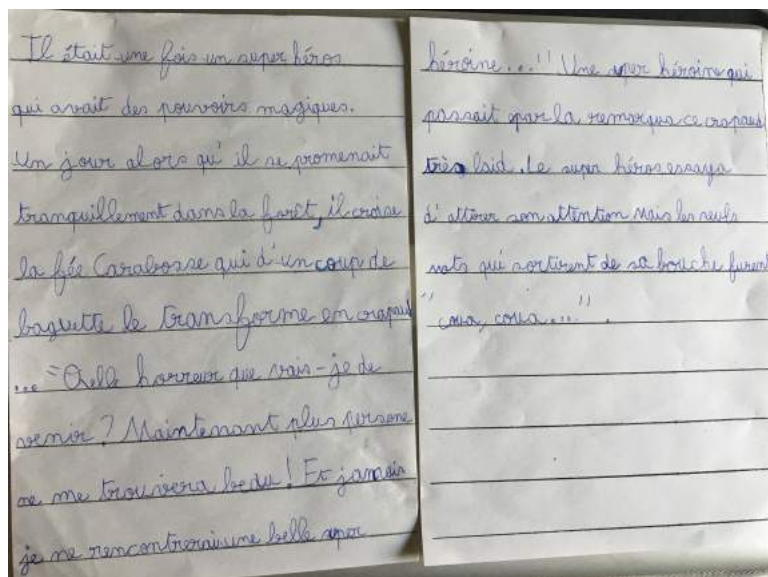 Il était une fois un super héros
qui avait des pouvoirs magiques.
Un jour alors qu'il se promenait
tranquillement dans la forêt, il croise
la fée Carabosse qui d'un coup de
baguette le transforme en crapaud
... "Quelle horreur que vais-je de
venir ? Maintenant plus persone
ne me trouvera beau ! Et jamais
je ne rencontrerai une belle super
héroïne..." Une super héroine qui
passait par la remarqua ce crapaud
très laid. Le super héros essaya
d'attirer son attention Mais les seuls
mots qui sortirent de sa bouche furent
"coua, coua..."